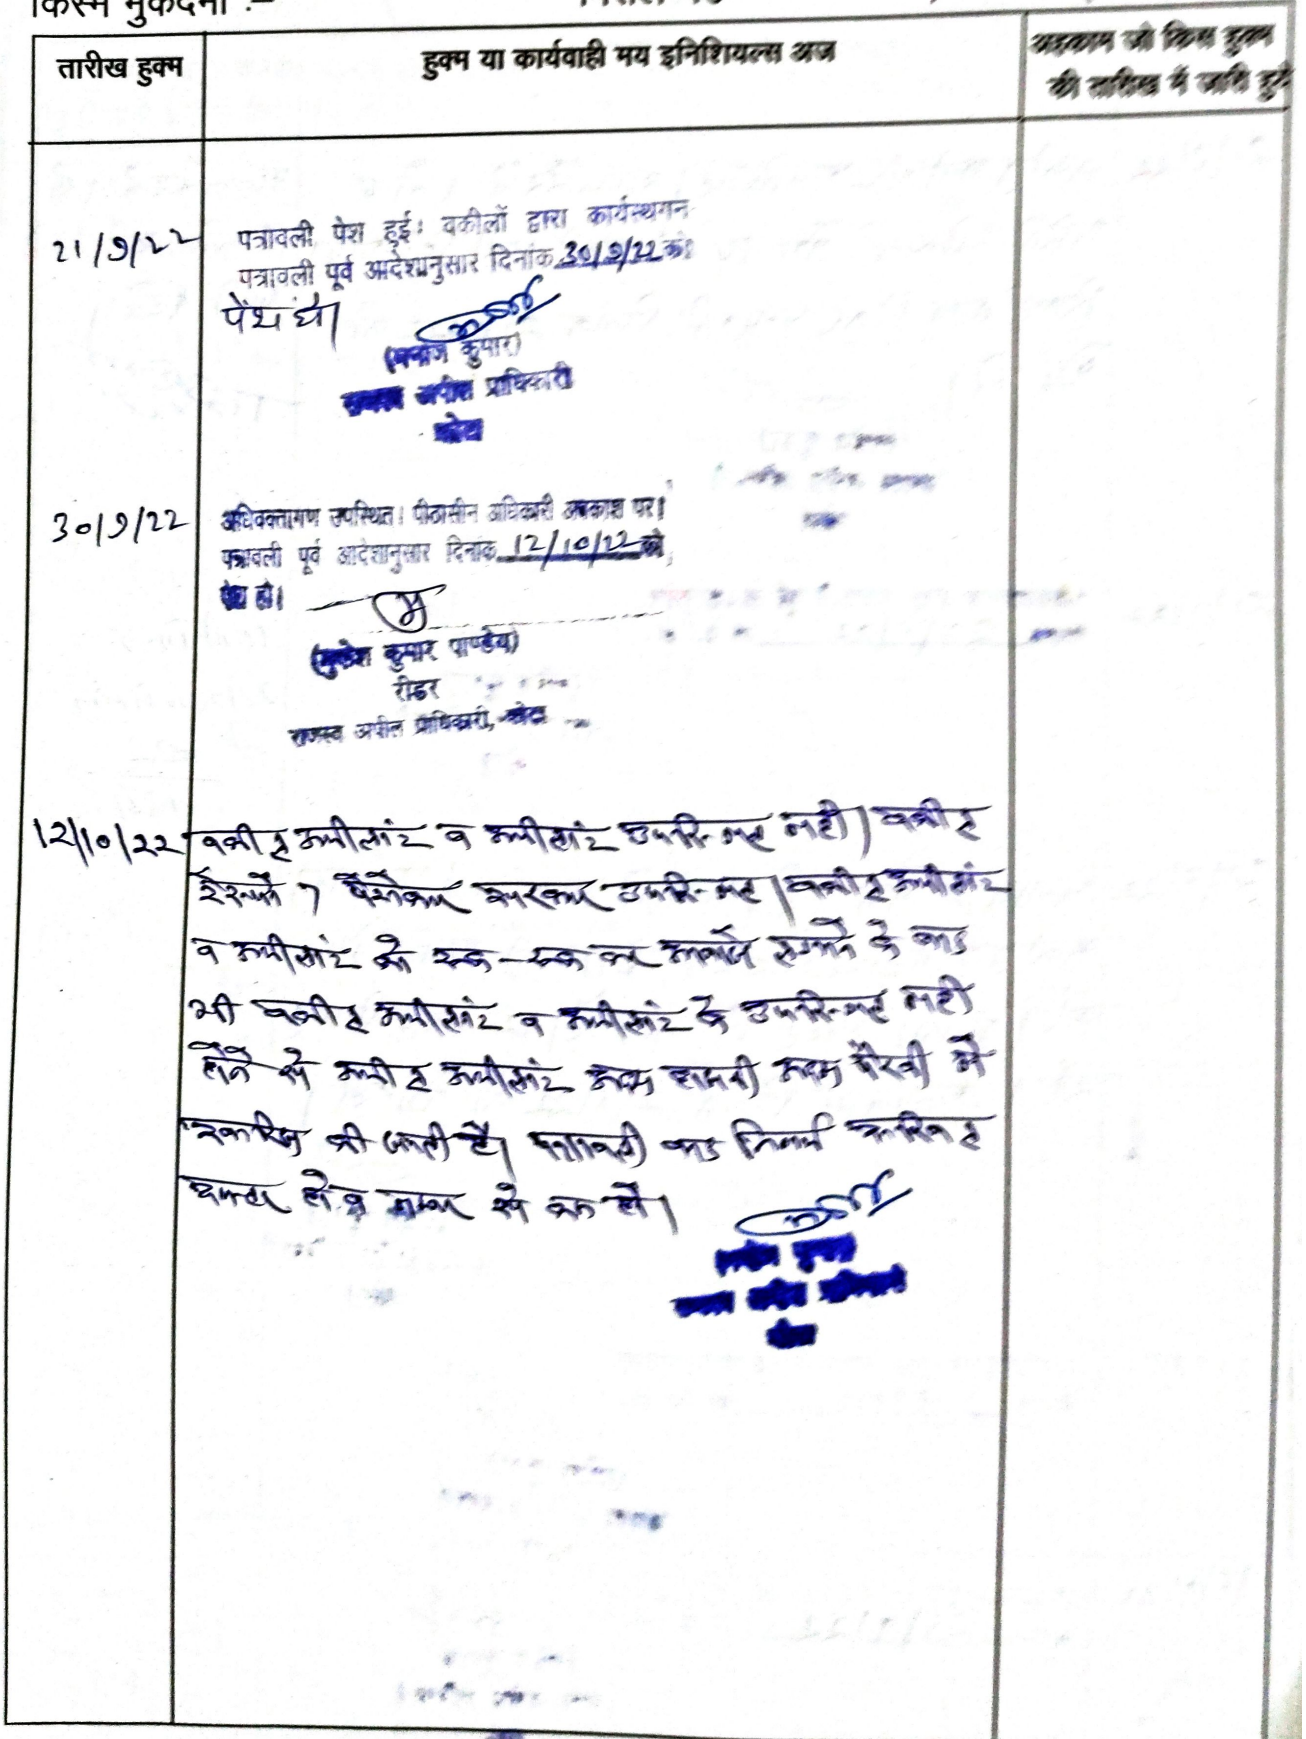 किस्म मुकदमा :-
तारीख हुक्म
हुक्म या कार्यवाही मय इनिशियल्स अज
अहकाम जो किस हुक्म
की तारिख में जारि हुये
21/9/22
पत्रावली पेश हुई। वकीलों द्वारा कार्यस्थगन
पत्रावली पूर्व आदेशानुसार दिनांक 30/9/22 को
पेश हो।
(मनोज कुमार)
राजस्व अपील प्राधिकारी
कोटा
30/9/22
अधिवक्तागण उपस्थित। पीठासीन अधिकारी अवकाश पर।
पत्रावली पूर्व आदेशानुसार दिनांक 12/10/22 को
पेश हो।
(मुकेश कुमार पाण्डेय)
रीडर
राजस्व अपील प्राधिकारी, कोटा
12/10/22
वकील अपीलांट व अपीलांट उपस्थित नही। वकील
रेस्पो पैरोकार सरकार उपस्थित। वकील अपीलांट
व अपीलांट को रुक-रुक कर आवाजे लगाने के बाद
भी वकील अपीलांट व अपीलांट के उपस्थित नही
होने से अपील अपीलांट अदम हाजरी अदम पैरवी मे
खारिज की जाती है। पत्रावली बाद
होकर नम्बर से कम हो।
(मनोज कुमार)
राजस्व अपील प्राधिकारी
कोटा